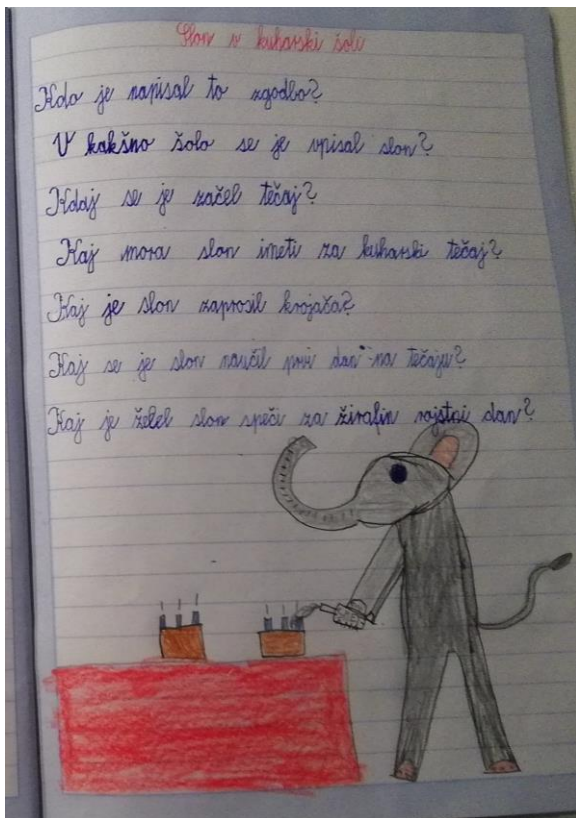 Slon v kuharski šoli
Kdo je napisal to zgodbo?
V kakšno šolo se je vpisal slon?
Kdaj se je začel tečaj?
Kaj mora slon imeti za kuharski tečaj?
Kaj je slon zaprosil krojača?
Kaj se je slon naučil prvi dan na tečaju?
Kaj je želel slon speči za žirafin rojstni dan?